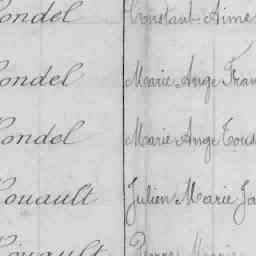 ondel Constant Aimé
ondel Marie Ange Fran
ondel Marie Ange Tous
ouault Julien Marie Ja
ouault Pierre